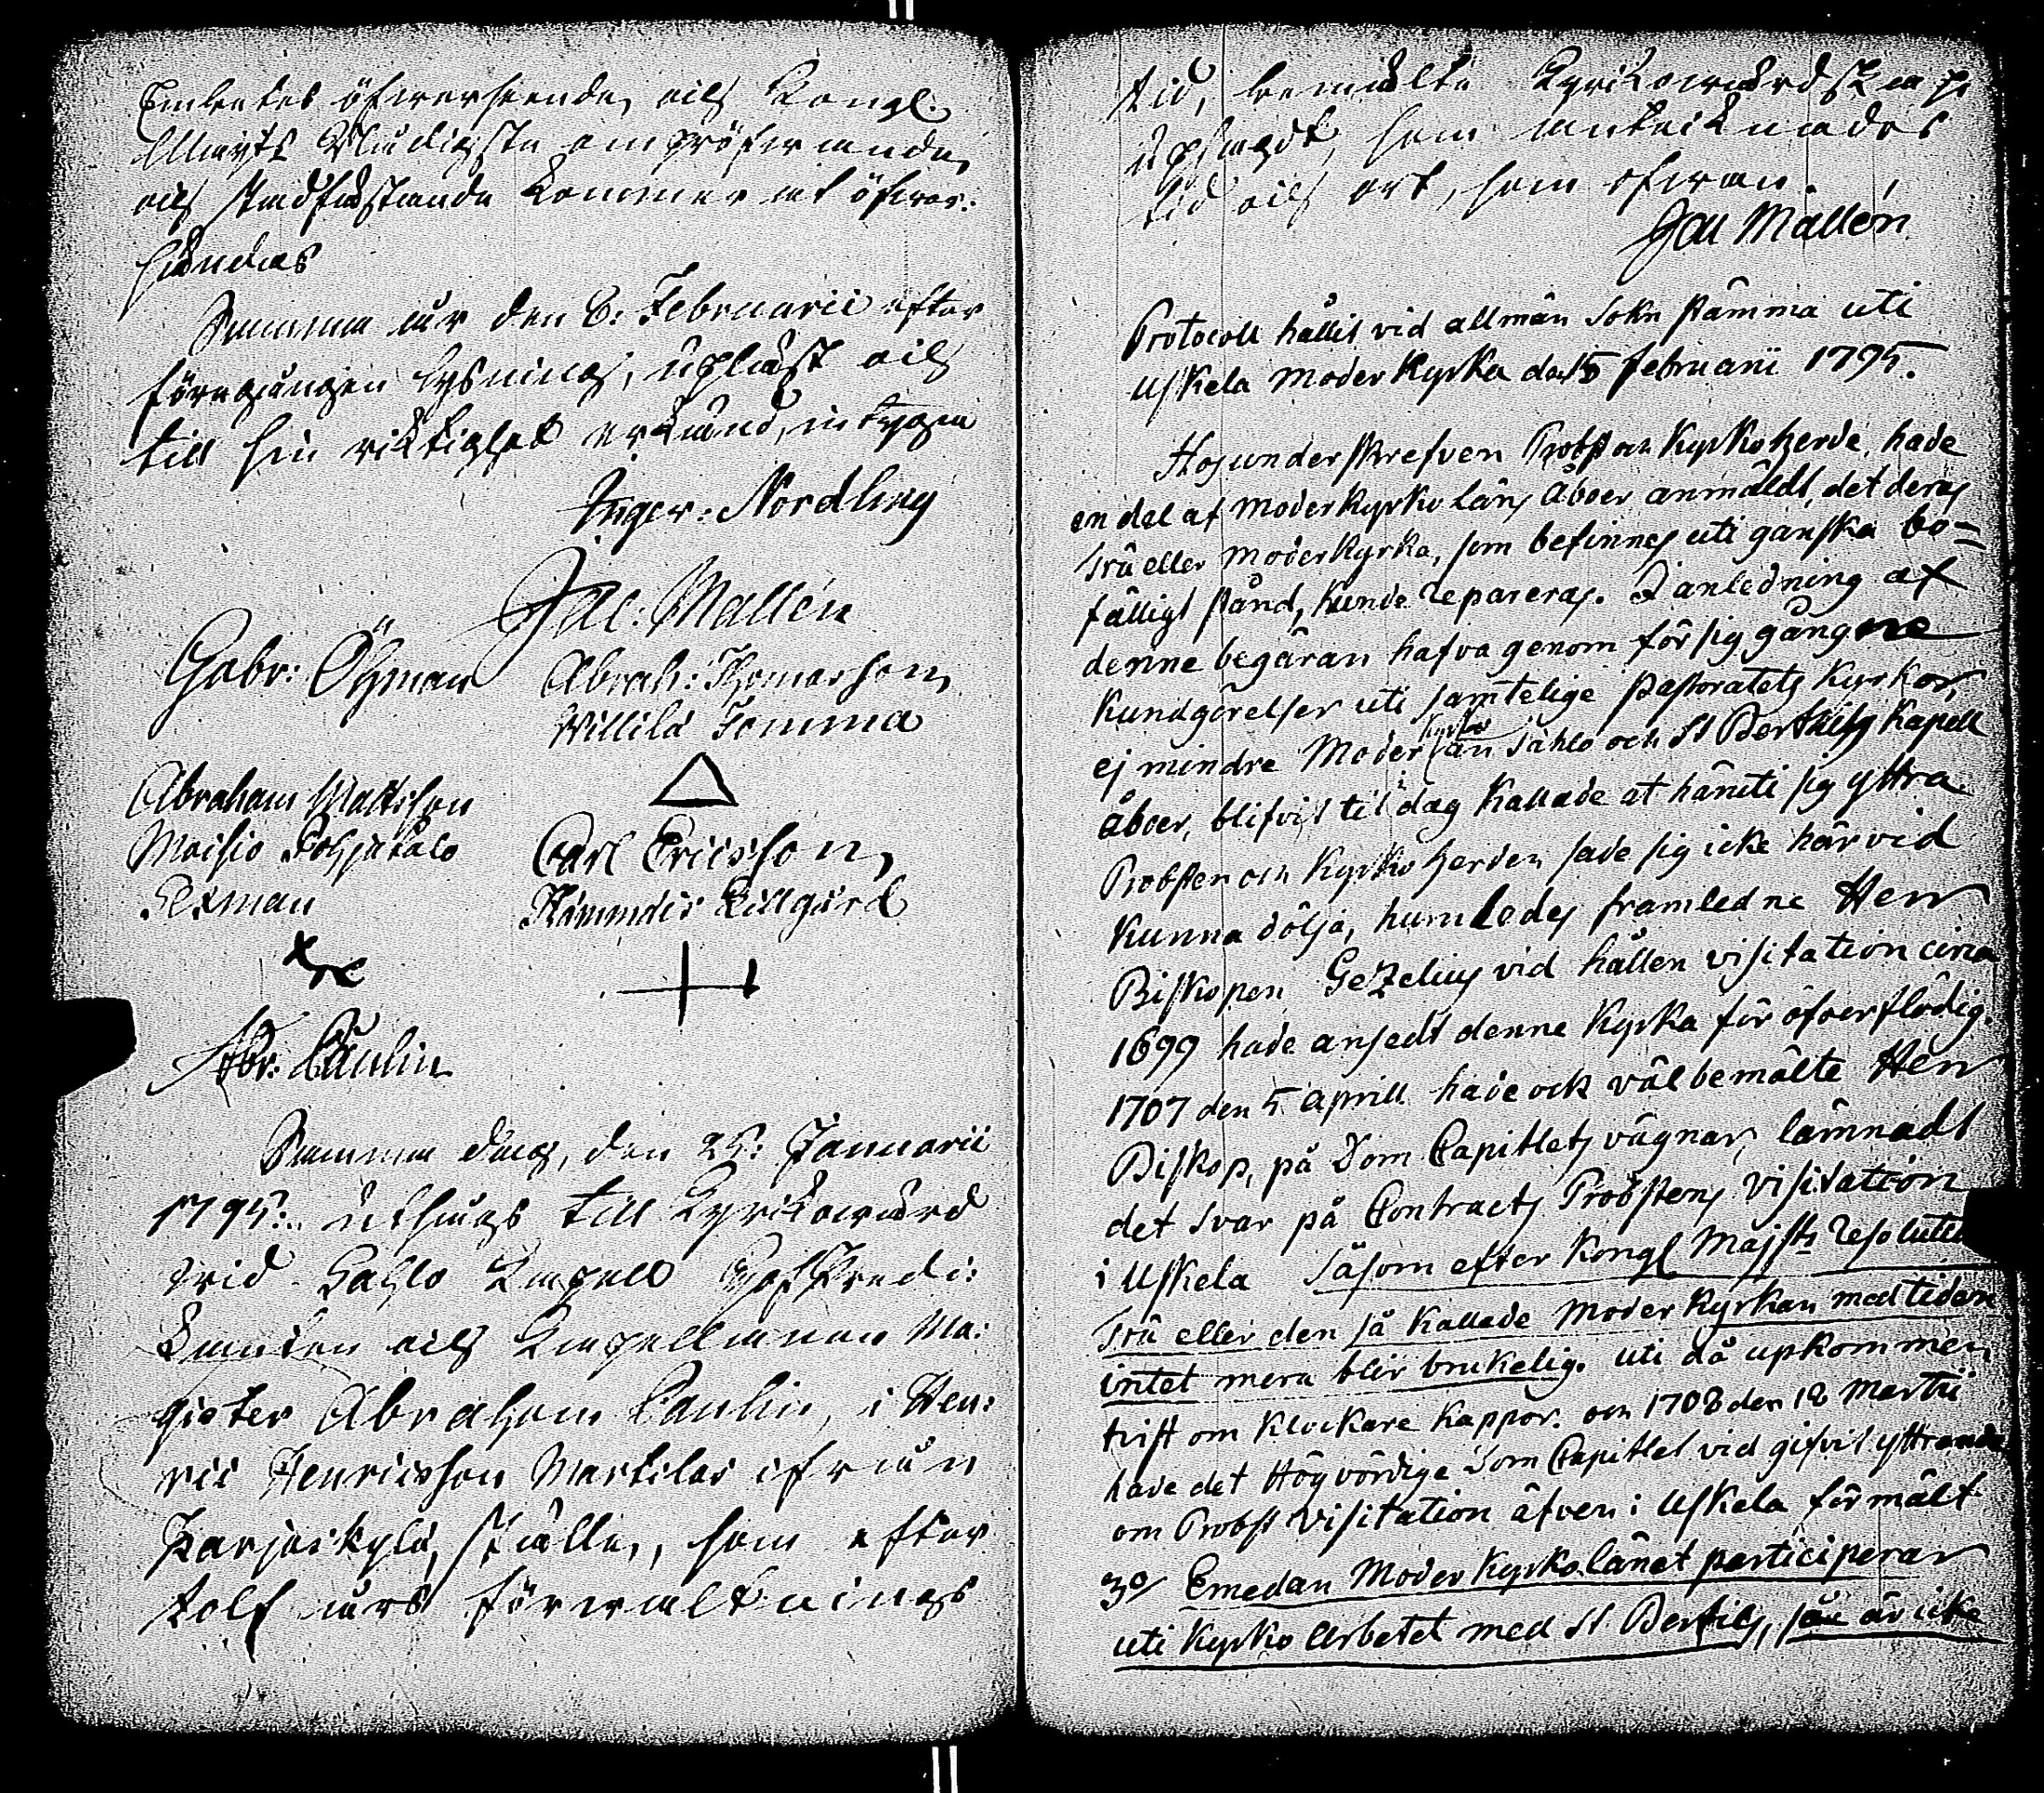 Embetes öfverseende, och Kongl.
Maijts Nådigsta ompröfvande,
och stadfästande kommer at öfver-
sändas
Summa år den 8: Februarii efter
föregången lysning, upläst och
till sin riktighet erkänd, intygar
Inger: Nordling
Jac: Mallén
Gabr: Öhman
Abrah: Thomasson,
Willilä Jomma
Abraham Mattsson
Moisio Pohjatalo
Sexman
Carl Ericsson,
Abr: Paulin
Samma dag, den 25: Januarii
1795. utsågs till Kyrkovärd
vid Sahlo Kapell Hofpredi-
kanten och Kapellanen Ma-
gister Abraham Paulin, i Hen-
ric Henricsson Markilas ifrån
Karjaskylä, ställe, som efter
tolf års förvaltnings
tid, bemälte Kyrkovärdskap
upsagdt, som antecknades
tid och ort, som ofvan.
Jac Mallén
Protocoll hållit vid allmän Sokn stämma uti
Uskela Moder Kyrka den 15 Februarii 1795.
Hos underskrefven Probst och Kyrkoherde, hade
en del af Moderkyrko läns Åboer anmäldt, det deras
Trä eller Moderkyrka, som befinnes uti ganska bo-
fälligt stånd, kunde repareras. I anledning af
denne begäran hafva genom för sig gångne
Kundgörelser uti samtelige Pastoratets Kyrkor,
ej mindre Moder kyrko län Sahlo och St Bertills Kapell
åboer, blifvit til i dag kallade at häruti sig yttra
Probsten och Kyrkoherden sade sig icke här vid
kunna dölja, humledes framledne Herr
Biskopen Gezelius vid hållen visitation circa
1699 hade ansedt denne Kyrka för öfverflödig.
1707 den 5 Aprill hade ock välbemälte Herr
Biskop, på Dom Capitlets vägnar, lämnadt
det svar på Contracts Probstens visitation
i Uskela Såsom efter Kongl Majsts resolution
Trä eller den så kallade Moder Kyrkan med tiden
intet mera blir brukelig. uti då upkommen
tvist om Klockare Kappor. och 1708 den 18 Martii
hade det Högvördige Dom Capitlet vid gifvit yttrande
om Probst Visitation äfven i Uskela förmält
3o/ Emedan Moder Kyrkolänet participerar
uti Kyrko Arbetet med St Bertils, så är icke